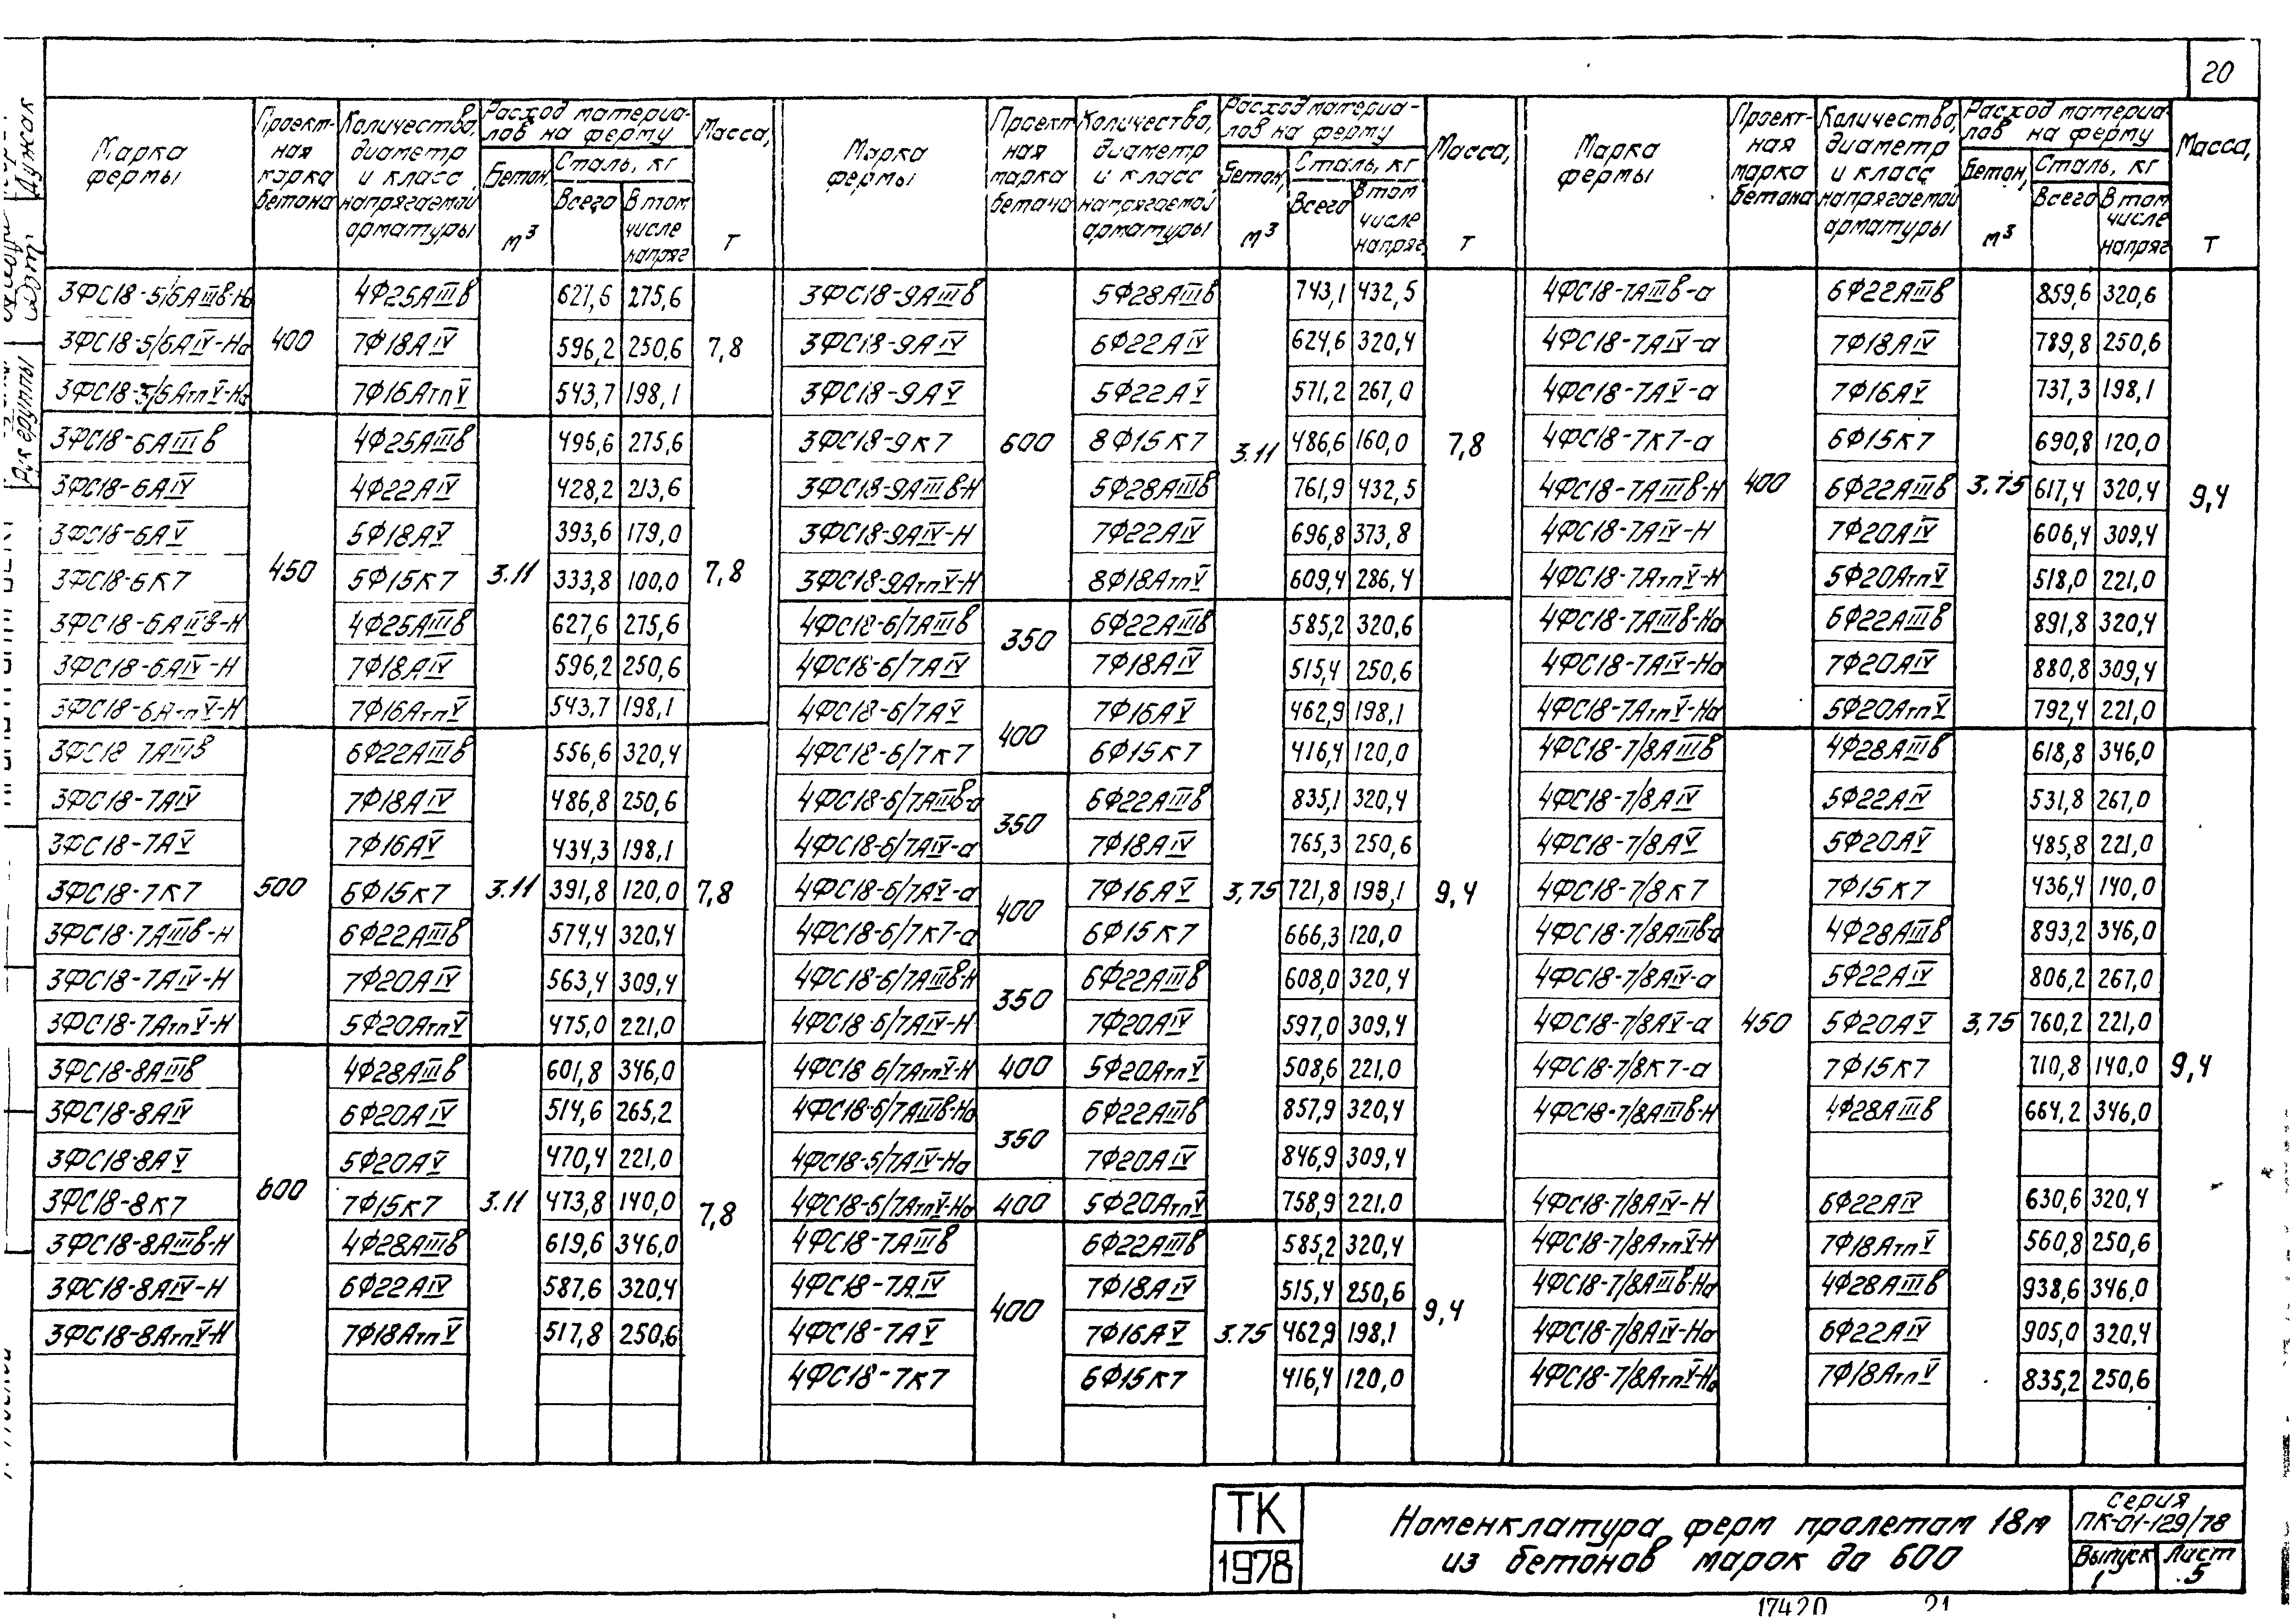 20
Марка фермы | Проектная марка бетона | Количество, диаметр и класс напрягаемой арматуры | Расход материалов на ферму | Бетон, м³ | Сталь, кг | Всего | В том числе напряг. | Масса, т
3ФС18-5/6АIIIв-На 4Ф25АIIIв 627,6 275,6
3ФС18-5/6АIV-На 400 7Ф18АIV 596,2 250,6 7,8
3ФС18-5/6АтпV-На 7Ф16АтпV 543,7 198,1
3ФС18-6АIIIв 4Ф25АIIIв 496,6 275,6
3ФС18-6АIV 4Ф22АIV 428,2 213,6
3ФС18-6АV 5Ф18АV 393,6 179,0
3ФС18-6К7 450 5Ф15К7 3.11 333,8 100,0 7,8
3ФС18-6АIIIв-Н 4Ф25АIIIв 627,6 275,6
3ФС18-6АIV-Н 7Ф18АIV 596,2 250,6
3ФС18-6АтпV-Н 7Ф16АтпV 543,7 198,1
3ФС18-7АIIIв 6Ф22АIIIв 556,6 320,4
3ФС18-7АIV 7Ф18АIV 486,8 250,6
3ФС18-7АV 7Ф16АV 434,3 198,1
3ФС18-7К7 500 6Ф15К7 3.11 391,8 120,0 7,8
3ФС18-7АIIIв-Н 6Ф22АIIIв 574,4 320,4
3ФС18-7АIV-Н 7Ф20АIV 563,4 309,4
3ФС18-7АтпV-Н 5Ф20АтпV 475,0 221,0
3ФС18-8АIIIв 4Ф28АIIIв 601,8 346,0
3ФС18-8АIV 6Ф20АIV 514,6 265,2
3ФС18-8АV 5Ф20АV 470,4 221,0
3ФС18-8К7 600 7Ф15К7 3.11 473,8 140,0 7,8
3ФС18-8АIIIв-Н 4Ф28АIIIв 619,6 346,0
3ФС18-8АIV-Н 6Ф22АIV 587,6 320,4
3ФС18-8АтпV-Н 7Ф18АтпV 517,8 250,6
Марка фермы | Проектная марка бетона | Количество, диаметр и класс напрягаемой арматуры | Расход материалов на ферму | Бетон, м³ | Сталь, кг | Всего | В том числе напряг. | Масса, т
3ФС18-9АIIIв 5Ф28АIIIв 743,1 432,5
3ФС18-9АIV 6Ф22АIV 624,6 320,4
3ФС18-9АV 5Ф22АV 571,2 267,0
3ФС18-9К7 600 8Ф15К7 3.11 486,6 160,0 7,8
3ФС18-9АIIIв-Н 5Ф28АIIIв 761,9 432,5
3ФС18-9АIV-Н 7Ф22АIV 696,8 373,8
3ФС18-9АтпV-Н 8Ф18АтпV 609,4 286,4
4ФС18-6/7АIIIв 350 6Ф22АIIIв 585,2 320,6
4ФС18-6/7АIV 7Ф18АIV 515,4 250,6
4ФС18-6/7АV 400 7Ф16АV 462,9 198,1
4ФС18-6/7К7 6Ф15К7 416,4 120,0
4ФС18-6/7АIIIв-а 350 6Ф22АIIIв 835,1 320,4
4ФС18-6/7АIV-а 7Ф18АIV 765,3 250,6
4ФС18-6/7АV-а 400 7Ф16АV 3,75 721,8 198,1 9,4
4ФС18-6/7К7-а 6Ф15К7 666,3 120,0
4ФС18-6/7АIIIв-Н 350 6Ф22АIIIв 608,0 320,4
4ФС18-6/7АIV-Н 7Ф20АIV 597,0 309,4
4ФС18-6/7АтпV-Н 400 5Ф20АтпV 508,6 221,0
4ФС18-6/7АIIIв-На 350 6Ф22АIIIв 857,9 320,4
4ФС18-6/7АIV-На 7Ф20АIV 846,9 309,4
4ФС18-6/7АтпV-На 400 5Ф20АтпV 758,9 221,0
4ФС18-7АIIIв 6Ф22АIIIв 585,2 320,4
4ФС18-7АIV 400 7Ф18АIV 515,4 250,6 9,4
4ФС18-7АV 7Ф16АV 3.75 462,9 198,1
4ФС18-7К7 6Ф15К7 416,4 120,0
Марка фермы | Проектная марка бетона | Количество, диаметр и класс напрягаемой арматуры | Расход материалов на ферму | Бетон, м³ | Сталь, кг | Всего | В том числе напряг | Масса, т
4ФС18-7АIIIв-а 6Ф22АIIIв 859,6 320,6
4ФС18-7АIV-а 7Ф18АIV 789,8 250,6
4ФС18-7АV-а 7Ф16АV 737,3 198,1
4ФС18-7К7-а 6Ф15К7 690,8 120,0
4ФС18-7АIIIв-Н 400 6Ф22АIIIв 3.75 617,4 320,4 9,4
4ФС18-7АIV-Н 7Ф20АIV 606,4 309,4
4ФС18-7АтпV-Н 5Ф20АтпV 518,0 221,0
4ФС18-7АIIIв-На 6Ф22АIIIв 891,8 320,4
4ФС18-7АIV-На 7Ф20АIV 880,8 309,4
4ФС18-7АтпV-На 5Ф20АтпV 792,4 221,0
4ФС18-7/8АIIIв 4Ф28АIIIв 618,8 346,0
4ФС18-7/8АIV 5Ф22АIV 531,8 267,0
4ФС18-7/8АV 5Ф20АV 485,8 221,0
4ФС18-7/8К7 7Ф15К7 436,4 140,0
4ФС18-7/8АIIIв-а 4Ф28АIIIв 893,2 346,0
4ФС18-7/8АIV-а 5Ф22АIV 806,2 267,0
4ФС18-7/8АV-а 450 5Ф20АV 3,75 760,2 221,0
4ФС18-7/8К7-а 7Ф15К7 710,8 140,0 9,4
4ФС18-7/8АIIIв-Н 4Ф28АIIIв 664,2 346,0
4ФС18-7/8АIV-Н 6Ф22АIV 630,6 320,4
4ФС18-7/8АтпV-Н 7Ф18АтпV 560,8 250,6
4ФС18-7/8АIIIв-На 4Ф28АIIIв 938,6 346,0
4ФС18-7/8АIV-На 6Ф22АIV 905,0 320,4
4ФС18-7/8АтпV-На 7Ф18АтпV 835,2 250,6
ТК
1978
Номенклатура ферм пролетом 18м
из бетонов марок до 600
серия
ПК-01-129/78
Выпуск 1
Лист 5
17420 21
Рук группы
Дужак